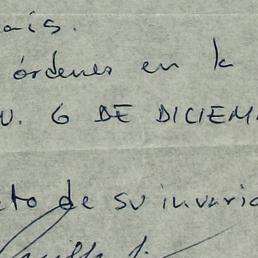 ais.
órdenes en la
U. 6 DE DICIEM
to de su invaria